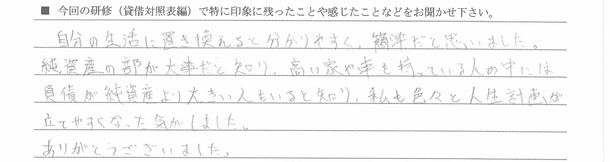 ■ 今回の研修（貸借対照表編）で特に印象に残ったことや感じたことなどをお聞かせ下さい。
自分の生活に置き換えると分かりやすく、簡単だと思いました。
純資産の部が大事だと知り、高い家や車を持っている人の中には
負債が純資産より大きい人もいると知り、私も色々と人生計画が
立てやすくなった気がしました。
ありがとうございました。